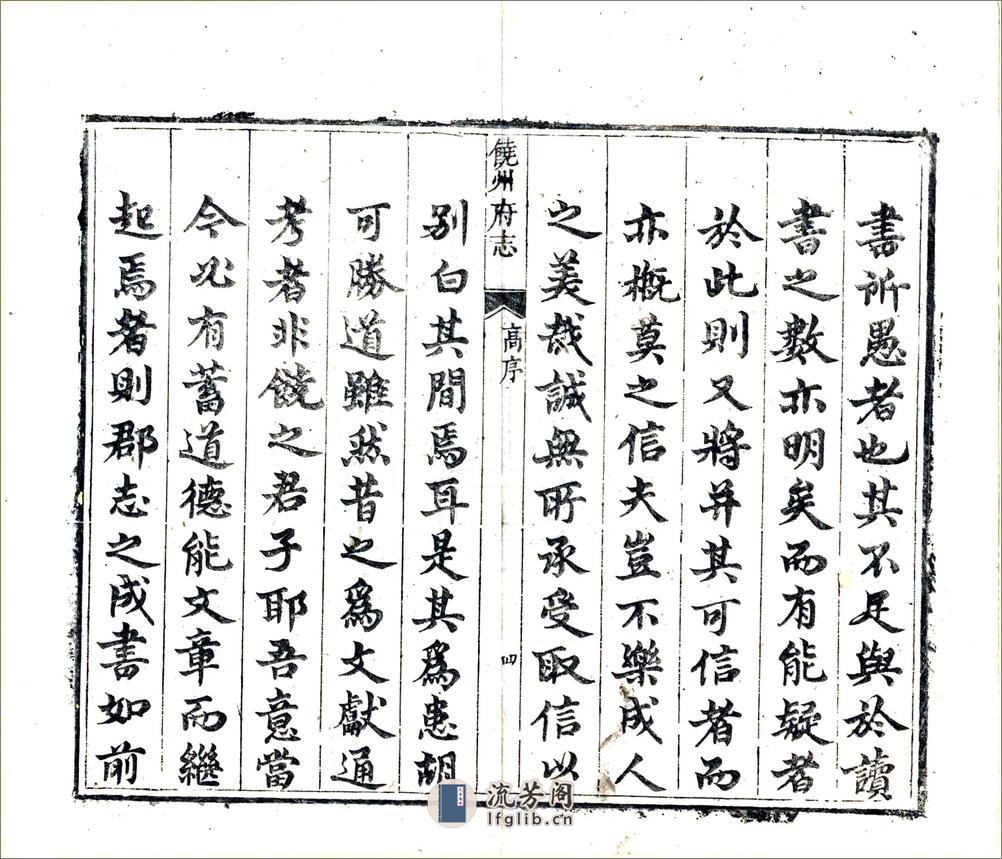 書所愚者也其不足與於讀
書之數亦明矣而有能疑者
於此則又將并其可信者而
亦概莫之信夫豈不樂成人
之美哉誠無所承受取信以
饒州府志
高序
四
别白其間焉耳是其為患胡
可勝道雖然昔之為文獻通
考者非饒之君子耶吾意當
今必有蓄道德能文章而繼
起焉者則郡志之成書如前
流芳阁
lfglib.cn